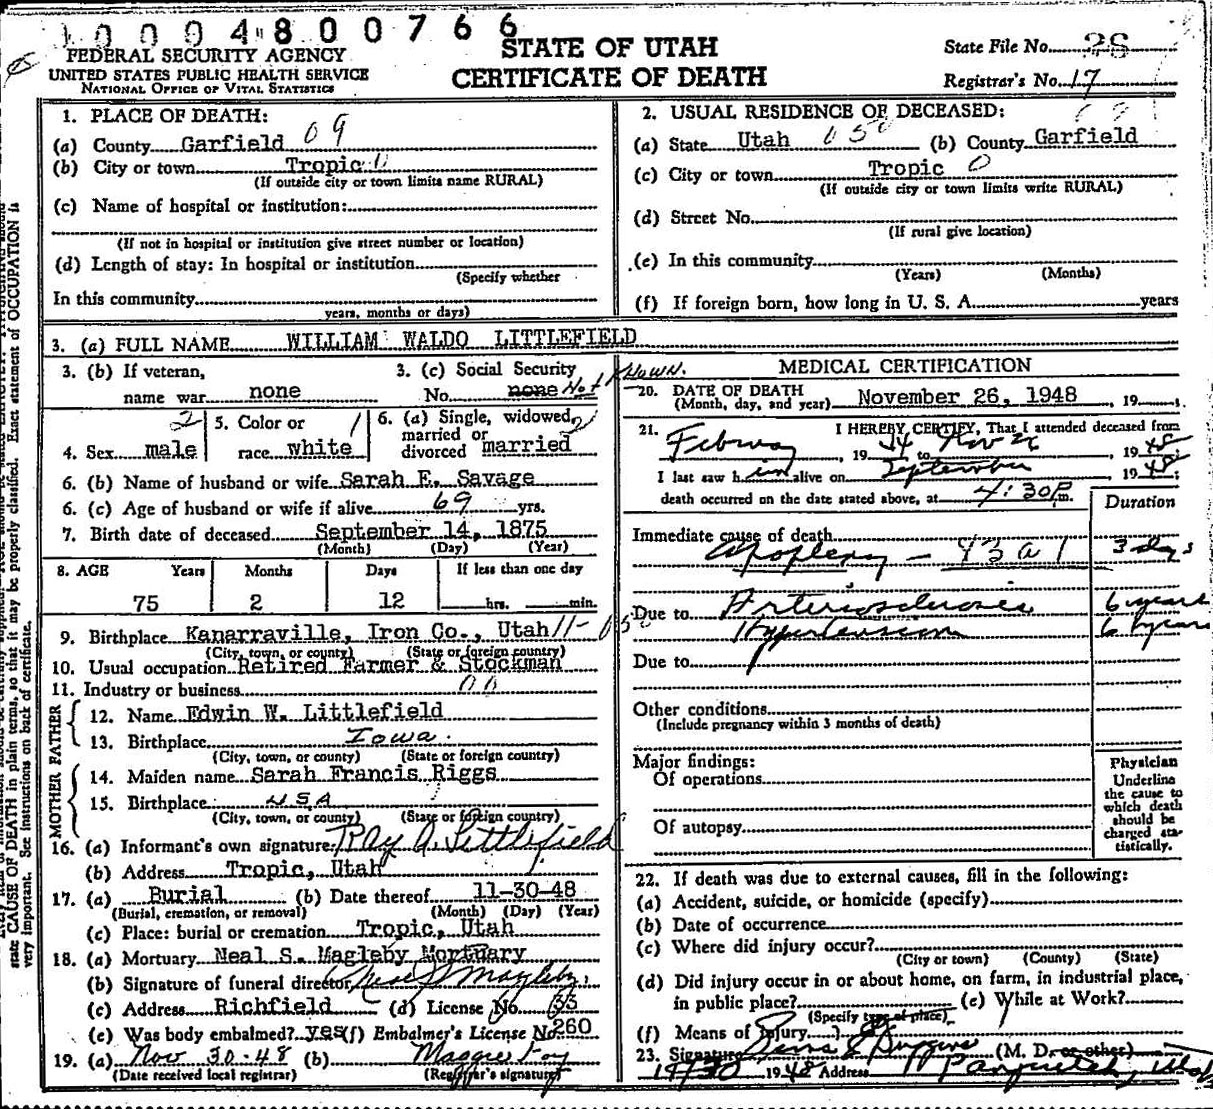 10004800766
FEDERAL SECURITY AGENCY
UNITED STATES PUBLIC HEALTH SERVICE
NATIONAL OFFICE OF VITAL STATISTICS
STATE OF UTAH
CERTIFICATE OF DEATH
State File No. 28
Registrar's No. 17
1. PLACE OF DEATH:
(a) County Garfield 09
(b) City or town Tropic
(If outside city or town limits name RURAL)
(c) Name of hospital or institution:
(If not in hospital or institution give street number or location)
(d) Length of stay: In hospital or institution
(Specify whether
In this community
years, months or days)
2. USUAL RESIDENCE OF DECEASED:
(a) State Utah 050 (b) County Garfield
(c) City or town Tropic 0
(If outside city or town limits write RURAL)
(d) Street No.
(If rural give location)
(e) In this community
(Years) (Months)
(f) If foreign born, how long in U. S. A. years
3. (a) FULL NAME WILLIAM WALDO LITTLEFIELD
3. (b) If veteran,
name war none
3. (c) Social Security
No. none Not Known.
4. Sex male 2
5. Color or
race white 1
6. (a) Single, widowed, 2
married or
divorced married
6. (b) Name of husband or wife Sarah E. Savage
6. (c) Age of husband or wife if alive 69 yrs.
7. Birth date of deceased September 14, 1875
(Month) (Day) (Year)
8. AGE Years Months Days If less than one day
75 2 12 hrs. min.
9. Birthplace Kanarraville, Iron Co., Utah 11-050
(City, town, or county) (State or foreign country)
10. Usual occupation Retired Farmer & Stockman
11. Industry or business 00
FATHER
12. Name Edwin W. Littlefield
13. Birthplace Iowa.
(City, town, or county) (State or foreign country)
MOTHER
14. Maiden name Sarah Francis Riggs
15. Birthplace USA
(City, town, or county) (State or foreign country)
16. (a) Informant's own signature: Ray A. Littlefield
(b) Address Tropic, Utah
17. (a) Burial (b) Date thereof 11-30-48
(Burial, cremation, or removal) (Month) (Day) (Year)
(c) Place: burial or cremation Tropic, Utah
18. (a) Mortuary Neal S. Magleby Mortuary
(b) Signature of funeral director Neal S Magleby
(c) Address Richfield (d) License No. 33
(e) Was body embalmed? yes (f) Embalmer's License No 260
19. (a) Nov 30-48 (b) Maggie Foy
(Date received local registrar) (Registrar's signature)
MEDICAL CERTIFICATION
20. DATE OF DEATH
(Month, day, and year) November 26, 1948, 19
21. I HEREBY CERTIFY, That I attended deceased from
February, 19 44 to Nov 26, 19 48
I last saw h im alive on September, 19 48;
death occurred on the date stated above, at 4:30 P m.
Duration
Immediate cause of death
Apoplexy — 93a1 3 dys
Due to Arteriosclerosis 6 years
Hypertension 6 years
Due to
Other conditions
(Include pregnancy within 3 months of death)
Major findings:
Of operations
Of autopsy
Physician
Underline
the cause to
which death
should be
charged sta-
tistically.
22. If death was due to external causes, fill in the following:
(a) Accident, suicide, or homicide (specify)
(b) Date of occurrence
(c) Where did injury occur?
(City or town) (County) (State)
(d) Did injury occur in or about home, on farm, in industrial place,
in public place? (e) While at Work?
(Specify type of place)
(f) Means of Injury
23. Signature (M. D. or other)
11/30 1948 Address Panguitch, Utah
state CAUSE OF DEATH in plain terms, so that it may be properly classified. Exact statement of OCCUPATION is
very important. See instructions on back of certificate.